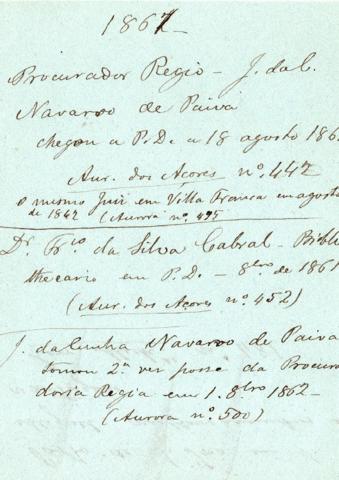 1861
Procurador Regio - J. da C.
Navarro de Paiva
chegou a P. D. a 18 agosto 186
Aur. dos Açores nº. 442
o mesmo Juiz em Villa Franca em agosto
de 1842 (Aurora nº. 495
Dr. Frco. da Silva Cabral - Biblio
thecario em P. D. - 8bro de 1861
(Aur. dos Açores nº. 452)
J. da Cunha Navarro de Paiva
tomou 2ª vez posse da Procura
doria Regia em 1. 8bro 1862-
(Aurora nº. 500)